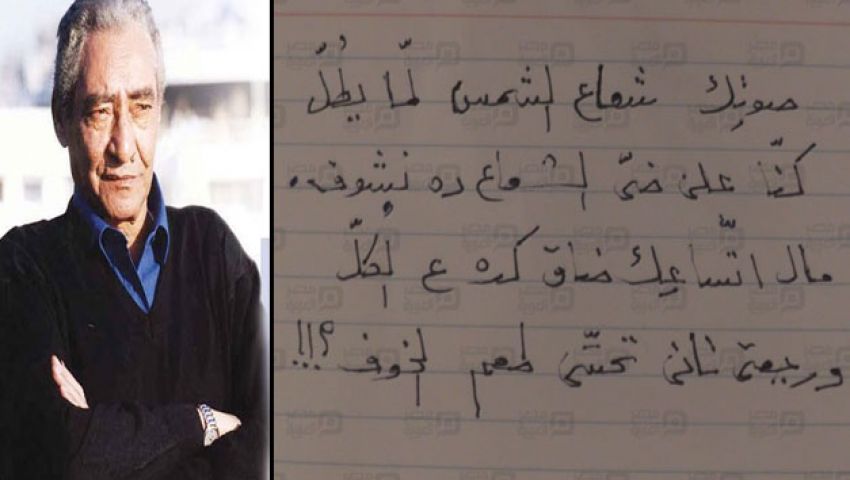 صوتِك شعاع الشمس لمّا يطُلّ
كنّا على ضىّ الشعاع ده نشوف..
مال اتّساعِك ضاق كده ع الكُلّ
ورجعتى تانى تحسّى طعم الخوف ؟!!!